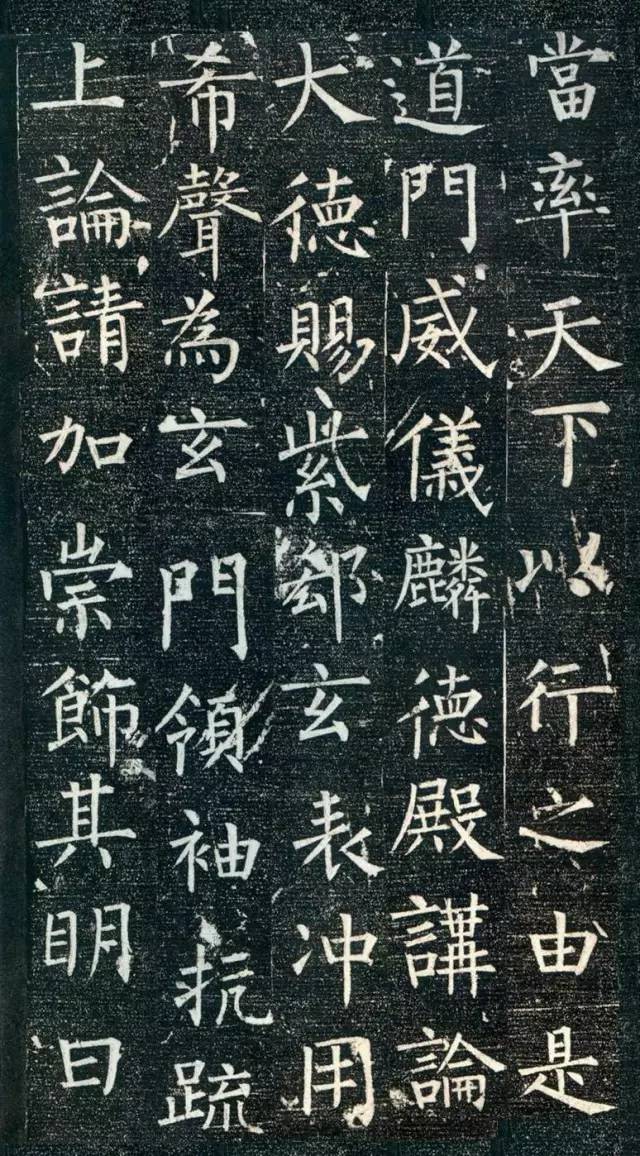 當率天下以行之由是
道門威儀麟德殿講論
大德賜紫郄玄表冲用
希聲為玄門領袖抗疏
上論請加崇飾其明日